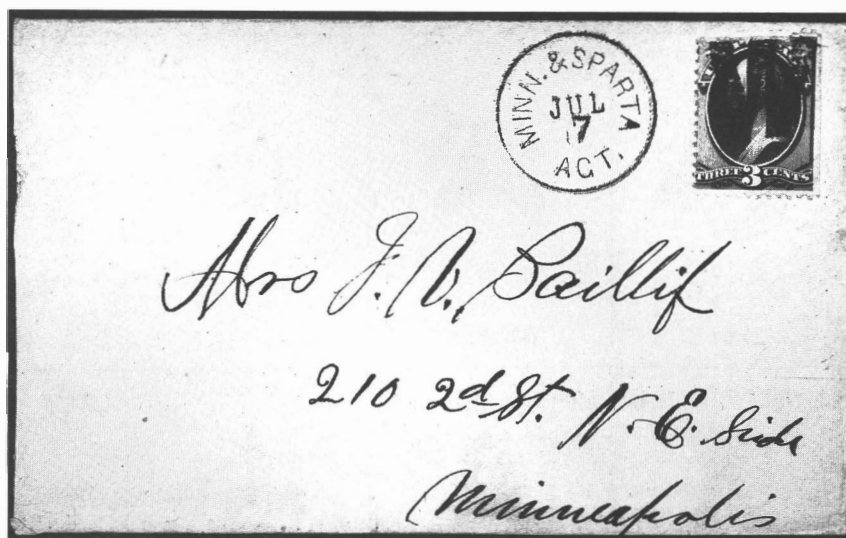 MINN. & SPARTA
JUL
17
AGT.
THREE 3 CENTS
Mrs J. V. Baillif
210 2d St. N. E. Side
Minneapolis